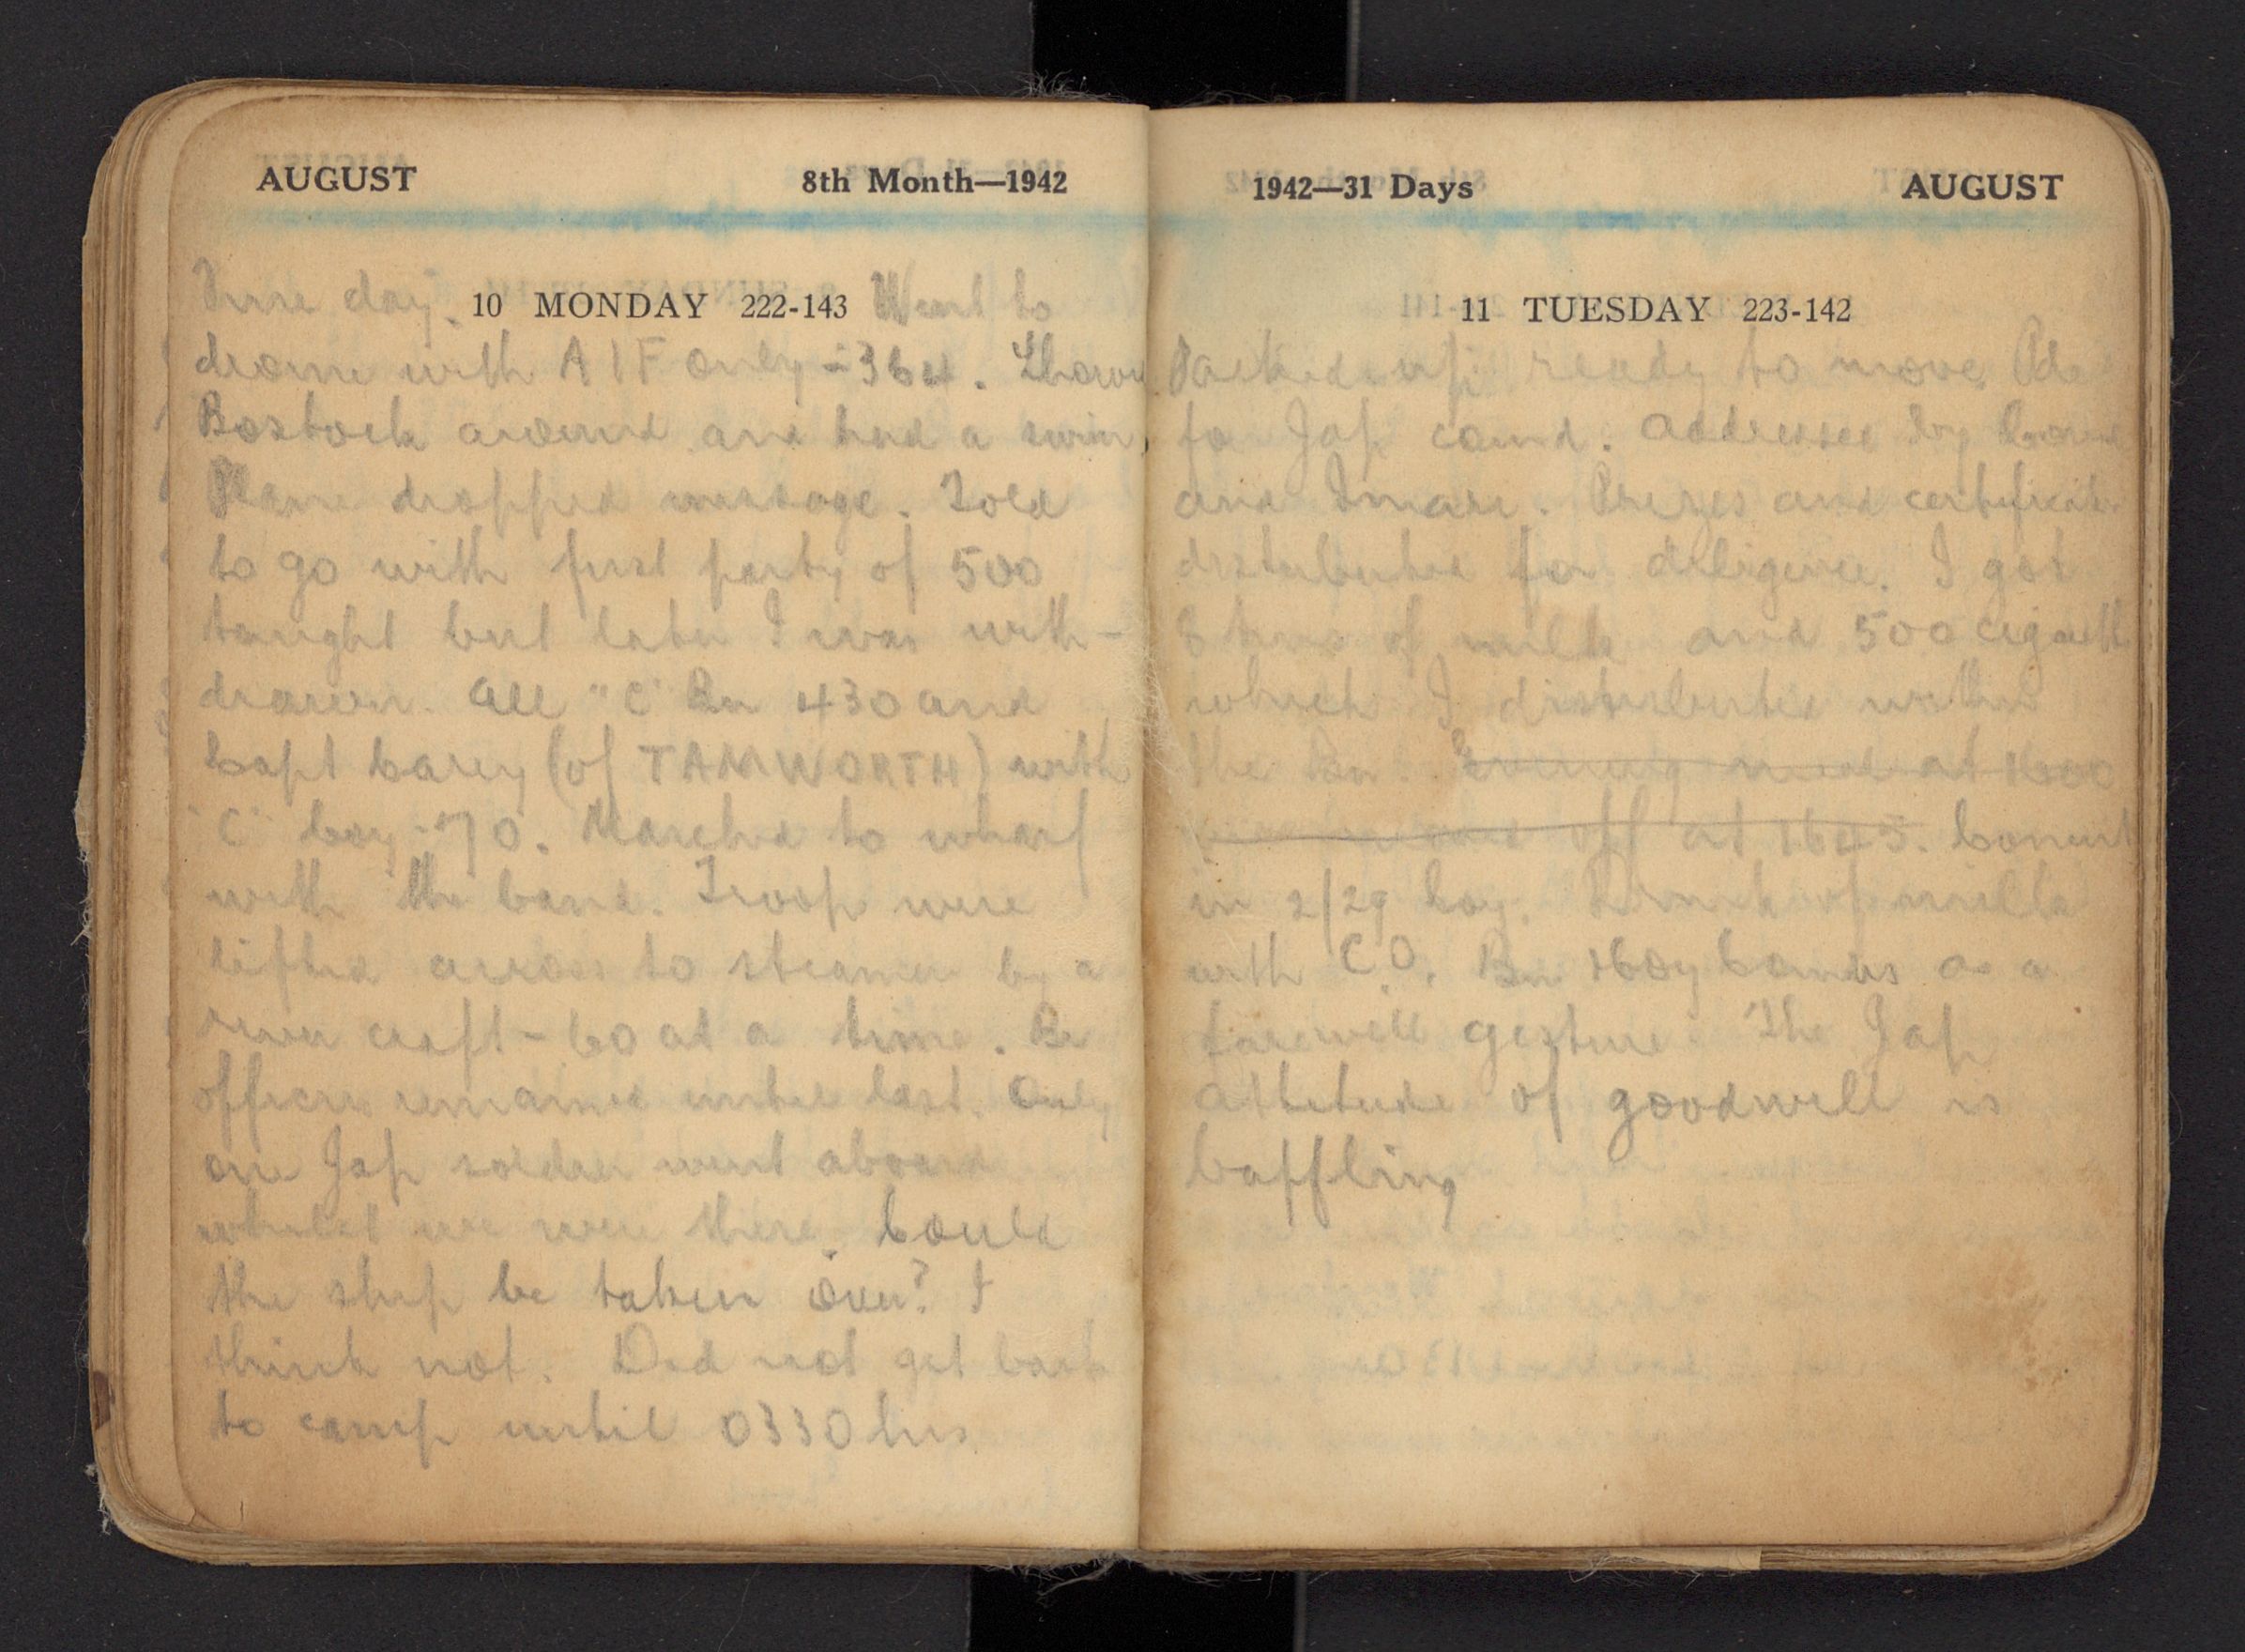 AUGUST 8th Month—1942
Fine day. 10 MONDAY 222-143 Went to
drome with AIF only - 364. Shown
Bostock around and had a swim,
Plane dropped message. Told
to go with first party of 500
tonight but later I was with-
drawn. All "C" Bn 430 and
Capt Carey (of TAMWORTH) with
"C" Coy - 70. Marched to wharf
with the band. Troops were
lifted across to steamer by a
river craft - 60 at a time. Bn
officers remained until last. Only
one Jap soldier went aboard
whilst we were there. Could
the ship be taken over? I
think not. Did not get back
to camp until 0330 hrs
1942—31 Days AUGUST
11 TUESDAY 223-142
Packed up ready to move. Pde
for Jap comd. Addressed by
and Imari. Prizes and certificates
distributed for diligence. I got
8 tins of milk and 500 cigarettes
which I distributed within
the Bn. Evening meal at 1600
off at 1645. Concert
in 2/29 Coy. Drink of milk
with C.O. Bn as a
farewell gesture. The Jap
attitude of goodwill is
baffling